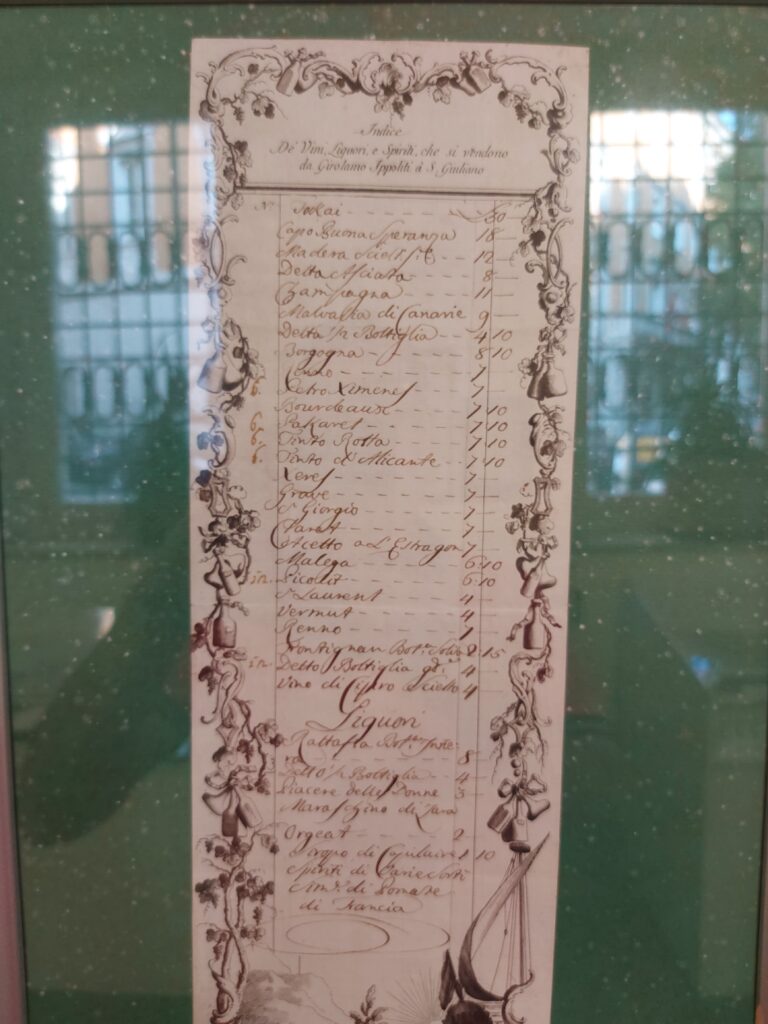 Indice
De' Vini, Liquori, e Spiriti, che si vendono
da Girolamo Ippoliti à S. Giuliano
Tokai 30
Capo Buona Speranza 18
Madera 12
Detta Asciata 8
Champagna 11
Malvasia di Canarie 9
Detta 1/2 Bottiglia 4 10
Borgogna 8 10
Renno 7
6. Petro Ximenes 7
Bourdeaux 7 10
6. Pakaret 7 10
6. Tinto Rotta 7 10
6. Tinto d'Alicante 7 10
Xeres 7
Grave 7
S. Giorgio 7
7
Acetto a L'Estragon 7
Malega 6 10
Picolit 6 10
S. Laurent 4
Vermut 4
Renno
Frontignan Bot.
Detto Bottiglia 4
Vino di Cipro Scielto 4
Liquori
Rattafia
8
Detto 1/2 Bottiglia 4
Piacere delle Donne 3
Maraschino di Zara
Orgeat 2
Siropo di 10
Spiriti di Varie Sorti
di Pomate
di Francia